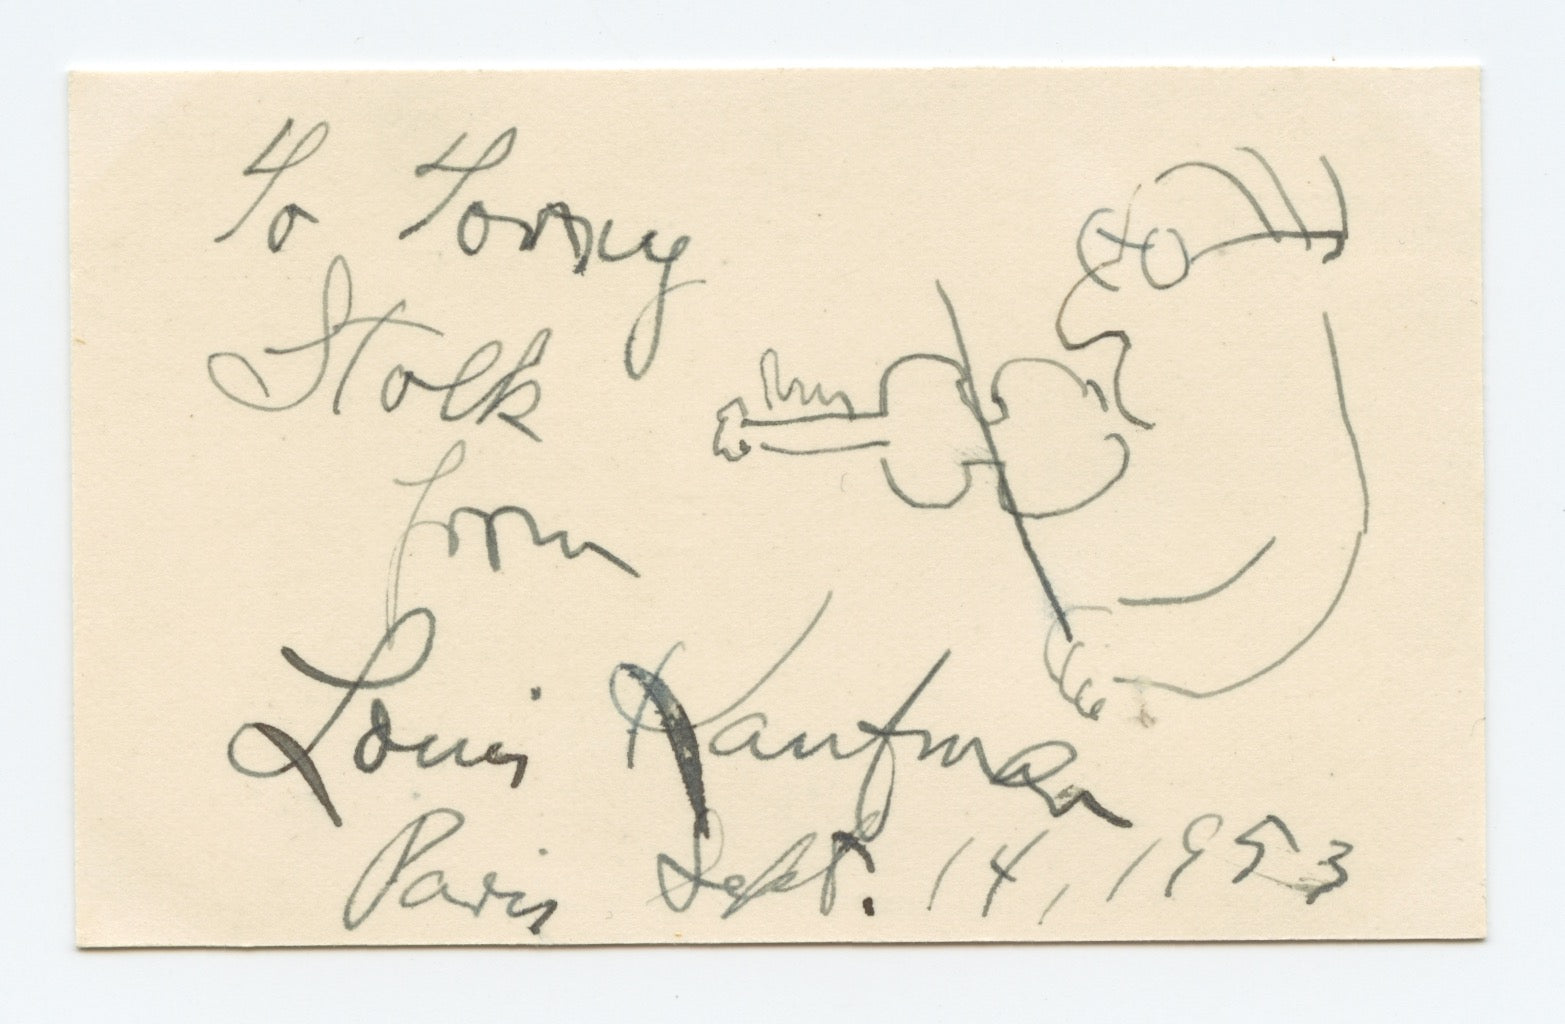 To Tonny
Stolk
from
Louis Kaufman
Paris Sept. 14, 1953